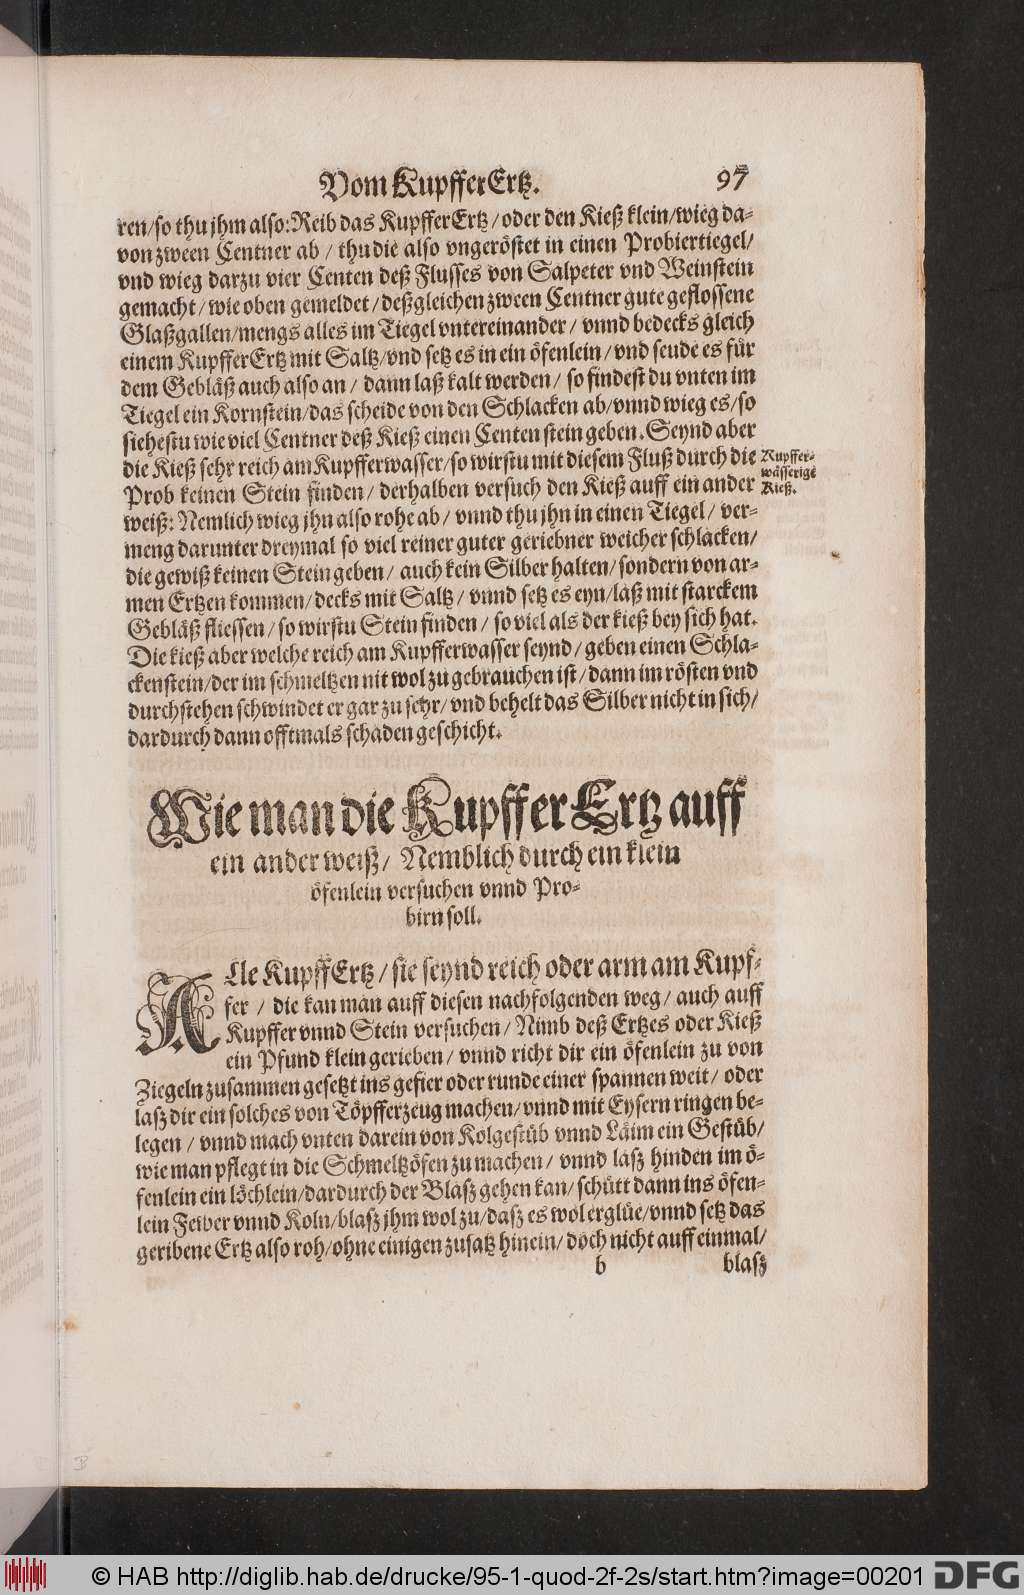 Vom Kupffer Ertz. 97
ren/so thu jhm also: Reib das Kupffer Ertz/oder den Kieß klein/wieg da-
von zween Centner ab / thu die also vngeröstet in einen Probiertiegel/
vnd wieg darzu vier Centen deß Flusses von Salpeter vnd Weinstein
gemacht/wie oben gemeldet/deßgleichen zween Centner gute geflossene
Glaßgallen/mengs alles im Tiegel vntereinander/ vnnd bedecks gleich
einem Kupffer Ertz mit Saltz/vnd setz es in ein öfenlein/vnd seude es für
dem Gebläß auch also an / dann laß kalt werden/ so findest du vnten im
Tiegel ein Kornstein/das scheide von den Schlacken ab/vnnd wieg es/so
siehestu wie viel Centner deß Kieß einen Centen stein geben. Seynd aber
die Kieß sehr reich am Kupfferwasser/so wirstu mit diesem Fluß durch die
Kupffer-
wässerige
Kieß.
Prob keinen Stein finden/ derhalben versuch den Kieß auff ein ander
weiß: Nemlich wieg jhn also rohe ab/ vnnd thu jhn in einen Tiegel/ ver-
meng darunter dreymal so viel reiner guter geriebner weicher schlacken/
die gewiß keinen Stein geben/ auch kein Silber halten/sondern von ar-
men Ertzen kommen/decks mit Saltz/ vnnd setz es eyn/laß mit starckem
Gebläß fliessen/so wirstu Stein finden/ so viel als der kieß bey sich hat.
Die kieß aber welche reich am Kupfferwasser seynd/geben einen Schla-
ckenstein/der im schmeltzen nit wol zu gebrauchen ist/dann im rösten vnd
durchstehen schwindet er gar zu sehr/vnd behelt das Silber nicht in sich/
dardurch dann offtmals schaden geschicht.
Wie man die Kupffer Ertz auff
ein ander weiß/ Nemblich durch ein klein
öfenlein versuchen vnnd Pro-
birn soll.
ALle KupffErtz/sie seynd reich oder arm am Kupf-
fer / die kan man auff diesen nachfolgenden weg/ auch auff
Kupffer vnnd Stein versuchen/Nimb deß Ertzes oder Kieß
ein Pfund klein gerieben/ vnnd richt dir ein öfenlein zu von
Ziegeln zusammen gesetzt ins gefier oder runde einer spannen weit/ oder
lasz dir ein solches von Töpfferzeug machen/vnnd mit Eysern ringen be-
legen / vnnd mach vnten darein von Kolgestüb vnnd Läim ein Gestüb/
wie man pflegt in die Schmeltzöfen zu machen/ vnnd lasz hinden im ö-
fenlein ein löchlein/dardurch der Blasz gehen kan/schütt dann ins öfen-
lein Feiber vnnd Koln/blasz jhm wol zu/dasz es wol erglüe/vnnd setz das
geribene Ertz also roh/ohne einigen zusatz hinein/doch nicht auff einmal/
b blasz
B
© HAB http://diglib.hab.de/drucke/95-1-quod-2f-2s/start.htm?image=00201 DFG